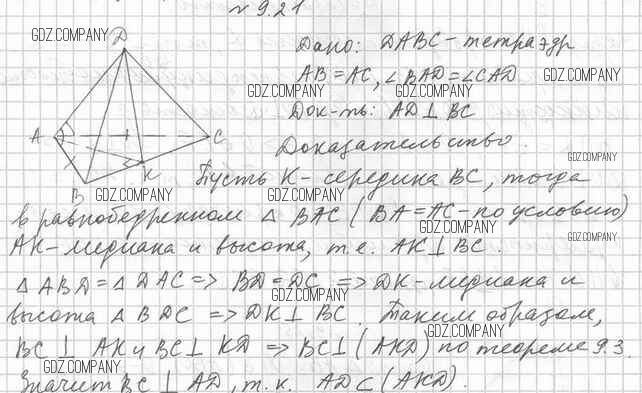 N 9.21
GDZ.COMPANY
D
Дано: DABC - тетраэдр
AB = AC, ∠BAD = ∠CAD. GDZ.COMPANY
GDZ.COMPANY GDZ.COMPANY
Док-ть: AD ⊥ BC
A C
Доказательство.
GDZ.COMPANY
K
B
Пусть K - середина BC, тогда
GDZ.COMPANY GDZ.COMPANY
в равнобедренном △ BAC (BA = AC - по условию)
GDZ.COMPANY
AK - медиана и высота, т.е. AK ⊥ BC.
△ ABD = △ DAC => BD = DC => DK - медиана и
GDZ.COMPANY
высота △ BDC => DK ⊥ BC. Таким образом,
GDZ.COMPANY
BC ⊥ AK и BC ⊥ KD => BC ⊥ (AKD) по теореме 9.3
GDZ.COMPANY
Значит BC ⊥ AD, т.к. AD ⊂ (AKD).